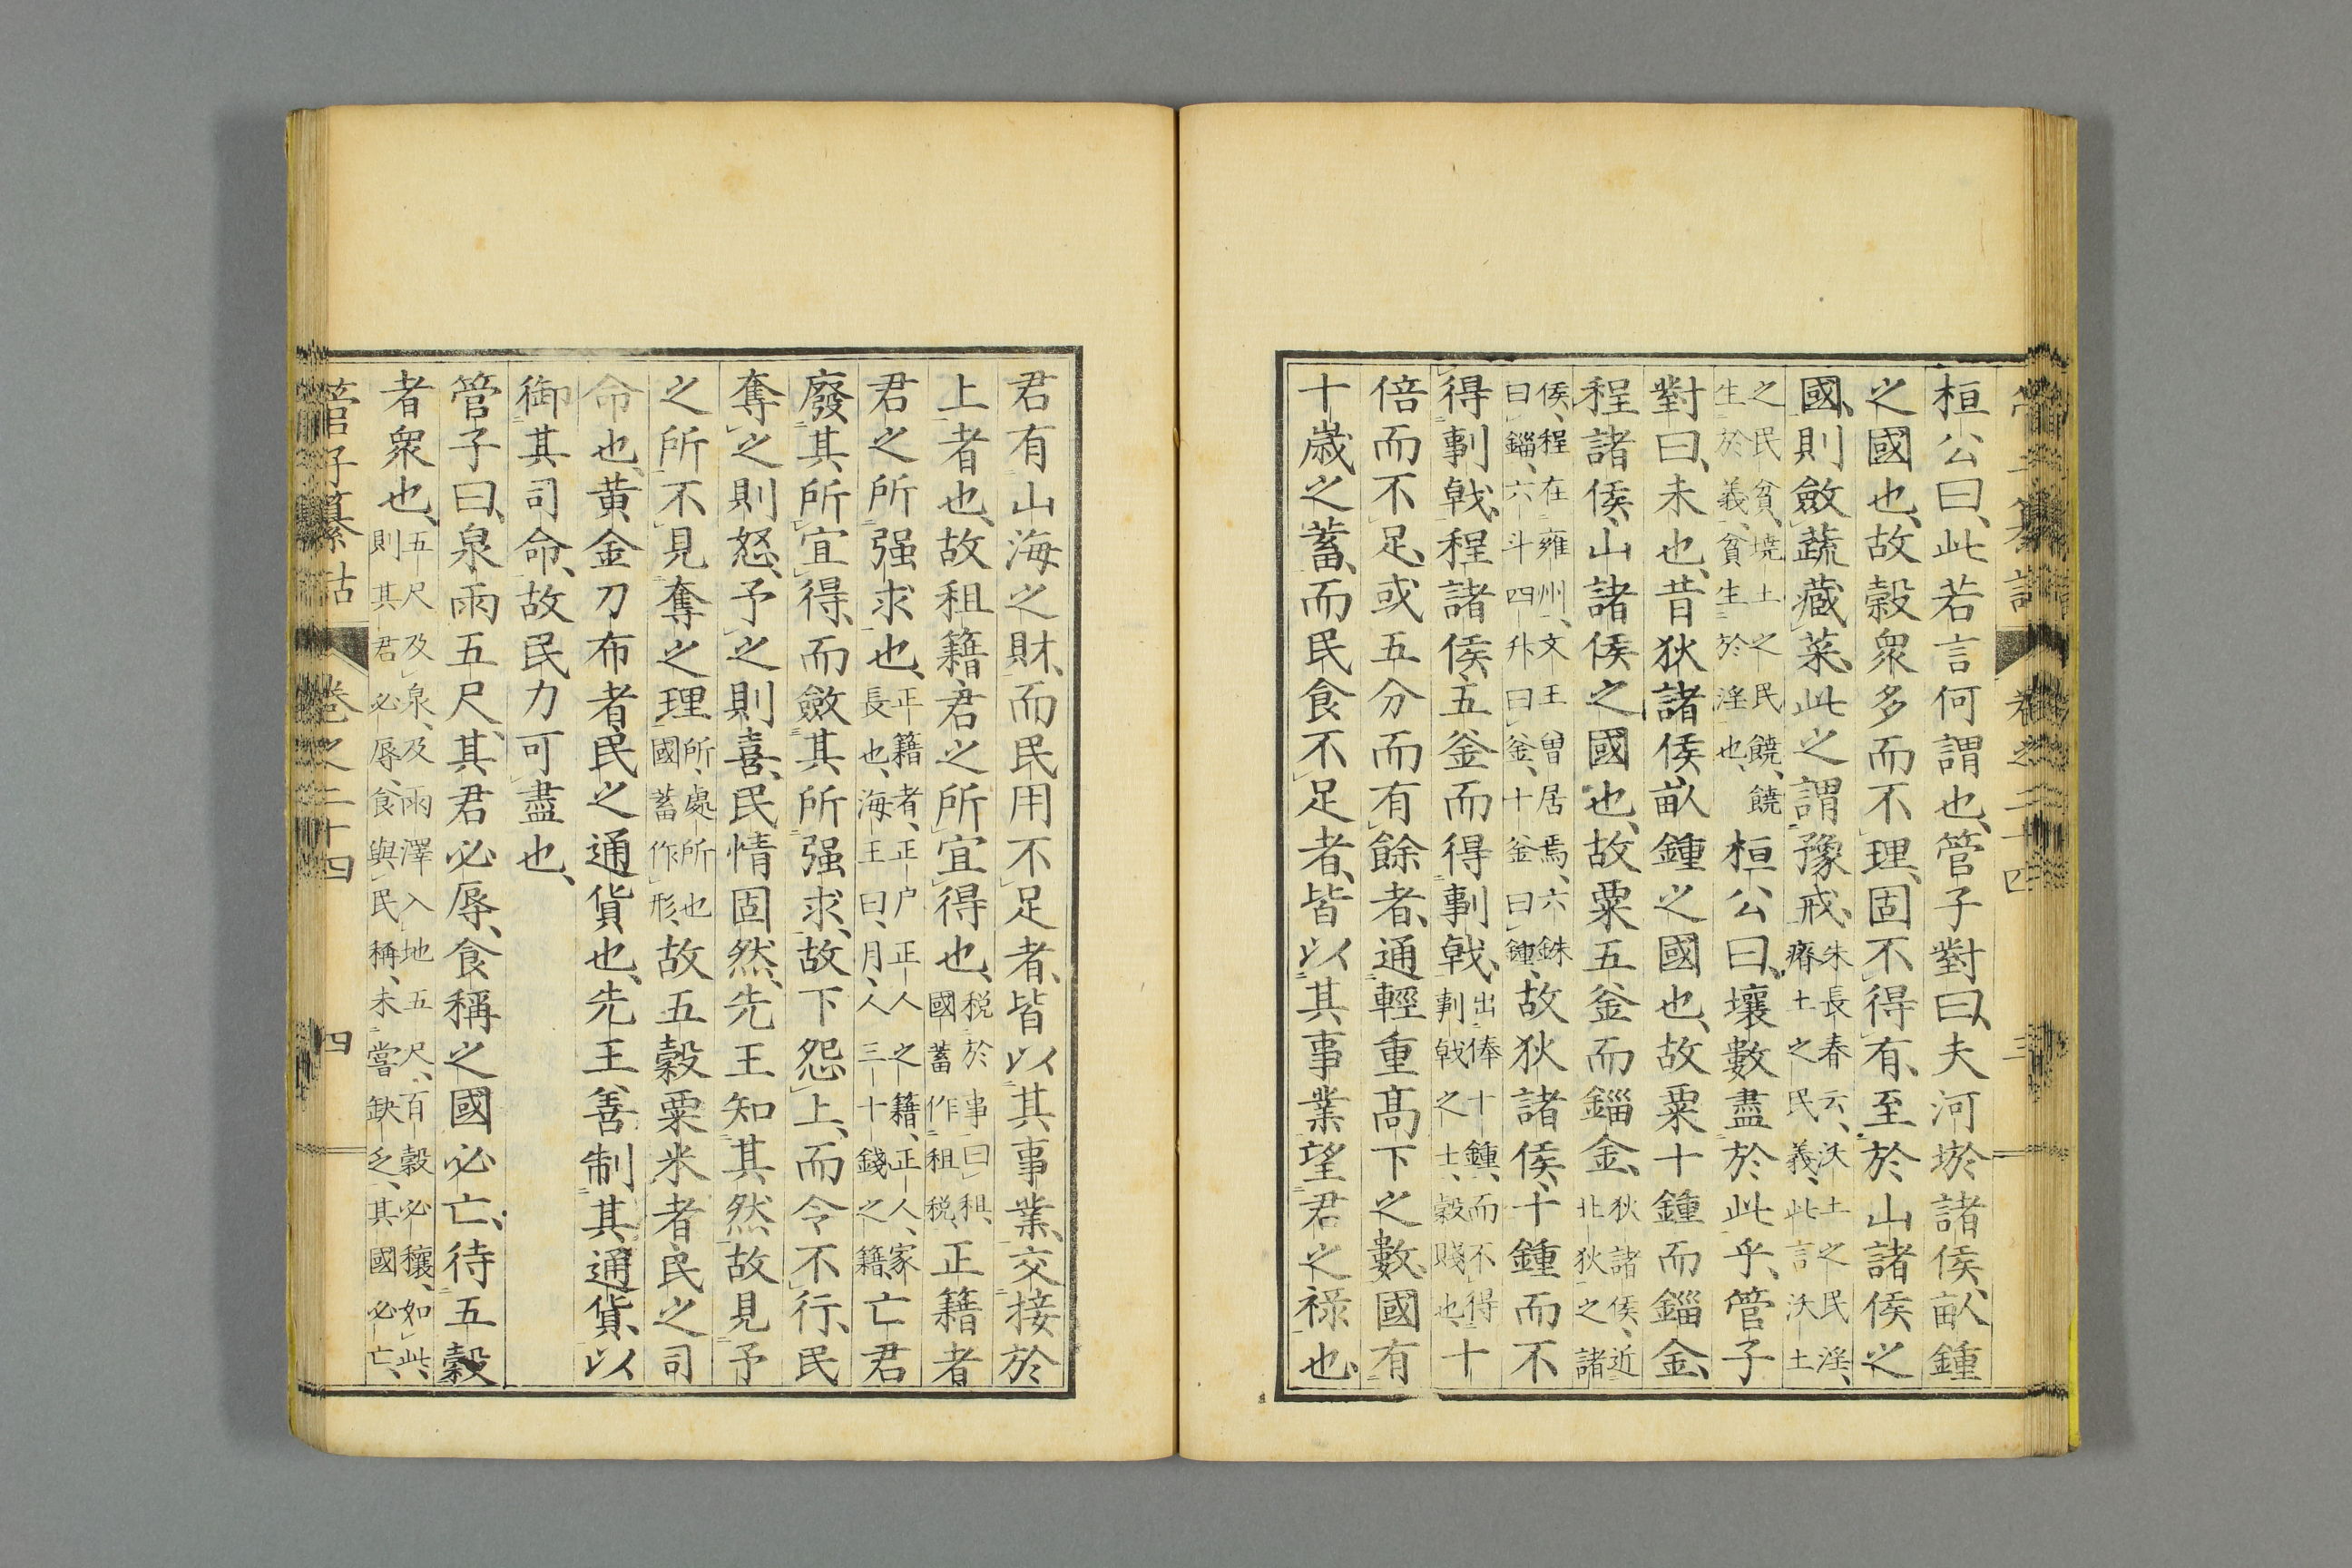 桓公曰、此若言何謂也、管子對曰、夫河塗諸侯、畝鍾
之國也、故穀衆多而不理、固不得有、至於山諸侯之
國、則斂蔬藏菜、此之謂豫戒、朱長春云、沃土之民淫、
瘠土之民義、此言沃土
之民貧、墝土之民饒、饒
生於義、貧生於淫也、桓公曰、壤數盡於此乎、管子
對曰、未也、昔狄諸侯、畝鍾之國也、故粟十鍾而錙金、
程諸侯、山諸侯之國也、故粟五釜而錙金、狄諸侯、近
北狄之諸
侯、程在雍州、文王曽居焉、六銖
曰錙、六斗四升曰釜、十釜曰鍾、故狄諸侯、十鍾而不
得剚戟、程諸侯、五釜而得剚戟、出俸十鍾、而不得
剚戟之士、穀賤也、十
倍而不足、或五分而有餘者、通輕重髙下之數、國有
十歲之蓄、而民食不足者、皆以其事業望君之祿也、
君有山海之財、而民用不足者、皆以其事業、交接於
上者也、故租籍、君之所宜得也、税於事曰租、
國蓄作租税、正籍者
君之所强求也、正籍者、正户正人之籍、正人、家
長也、海王曰、月、人三十錢之籍、亡君
廢其所宜得、而斂其所强求、故下怨上、而令不行、民
奪之則怒、予之則喜、民情固然、先王知其然、故見予
之所不見奪之理所、處所也
國蓄作形、故五穀粟米者、民之司
命也、黄金刀布者、民之通貨也、先王善制其通貨、以
御其司命、故民力可盡也、
管子曰、泉雨五尺、其君必辱、食稱之國必亡、待五穀
者衆也、五尺及泉、及雨澤入地五尺、百穀必穰、如此、
則其君必辱、食與民稱、未嘗缺乏、其國必亡、
管子纂詁 卷之二十四 四